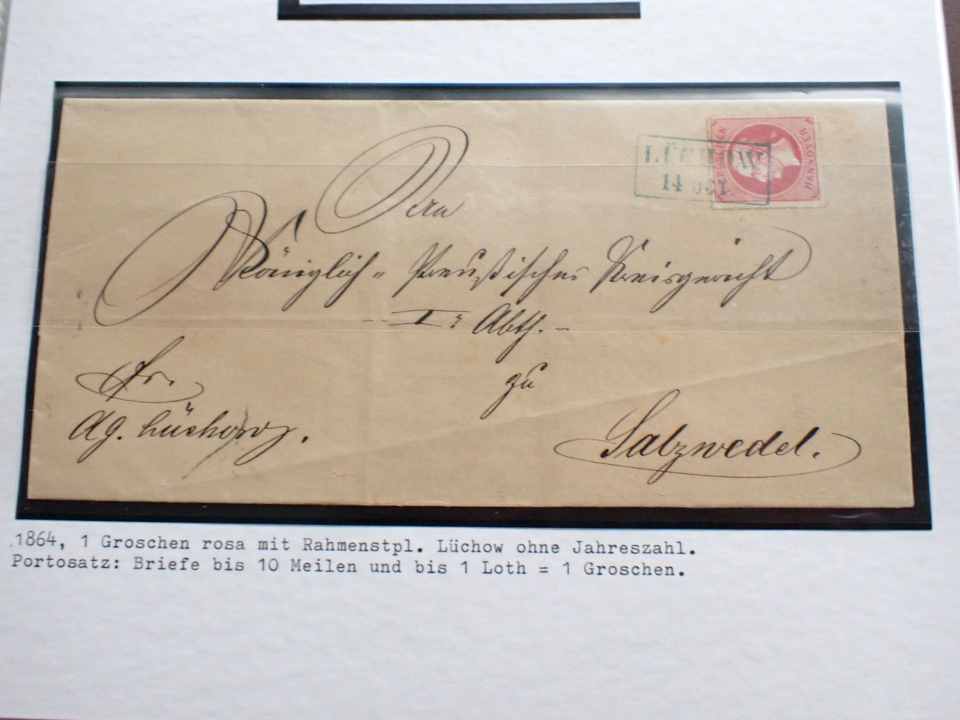 LÜCHOW
14 OCT
HANNOVER
Dem
Königlich= Preußischen Kreisgericht
- I: Abth. -
zu
Salzwedel.
Fr.
Ag. Lüchow.
1864, 1 Groschen rosa mit Rahmenstpl. Lüchow ohne Jahreszahl.
Portosatz: Briefe bis 10 Meilen und bis 1 Loth = 1 Groschen.